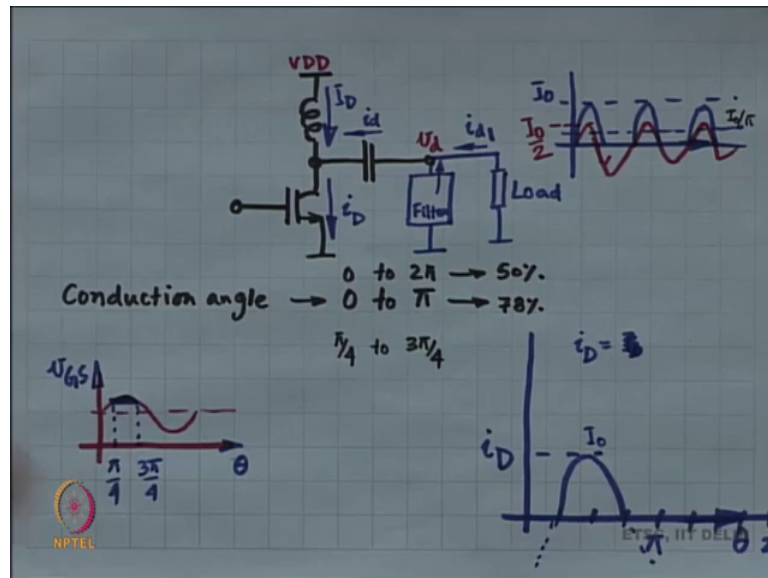 VDD
I_D
i_d
v_d
i_d1
i_D
Filter
Load
I_0
I_0/2
I_0/π
0 to 2π → 50%.
Conduction angle → 0 to π → 78%.
π/4 to 3π/4
v_GS
π/4
3π/4
θ
i_D =
i_D
I_0
π
θ
NPTEL
ETSC, IIT DELHI